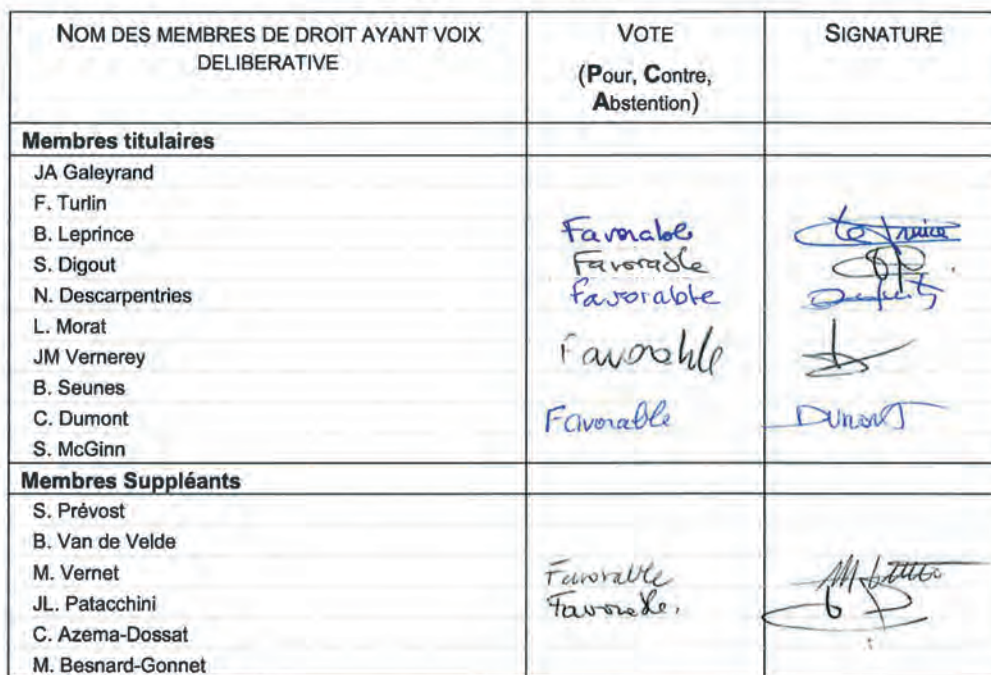 NOM DES MEMBRES DE DROIT AYANT VOIX DELIBERATIVE
VOTE
(Pour, Contre, Abstention)
SIGNATURE
Membres titulaires
JA Galeyrand
F. Turlin
B. Leprince Favorable
S. Digout Favorable
N. Descarpentries favorable
L. Morat
JM Vernerey Favorable
B. Seunes
C. Dumont Favorable Dumont
S. McGinn
Membres Suppléants
S. Prévost
B. Van de Velde
M. Vernet Favorable
JL. Patacchini Favorable.
C. Azema-Dossat
M. Besnard-Gonnet